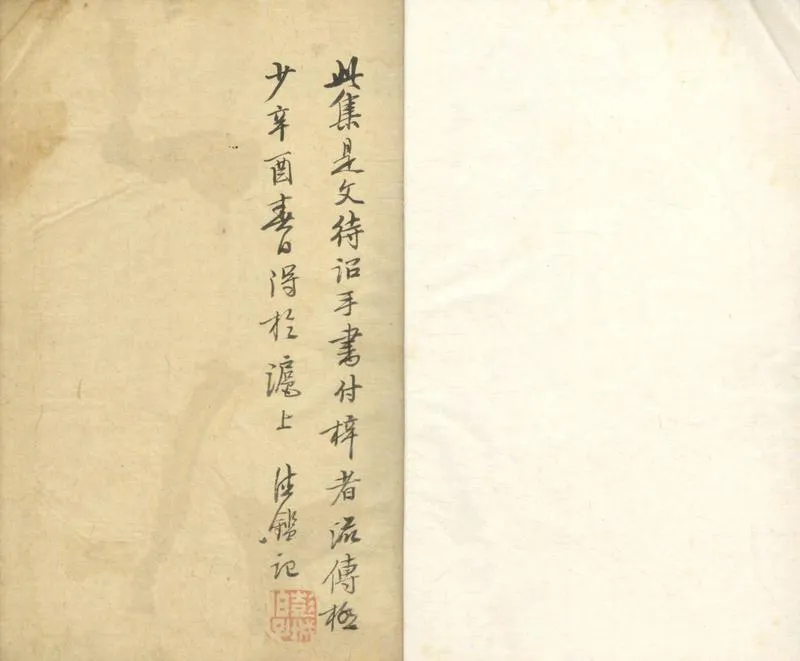 此集是文待诏手書付梓者流傳極
少辛酉春日得於滬上 鑑記